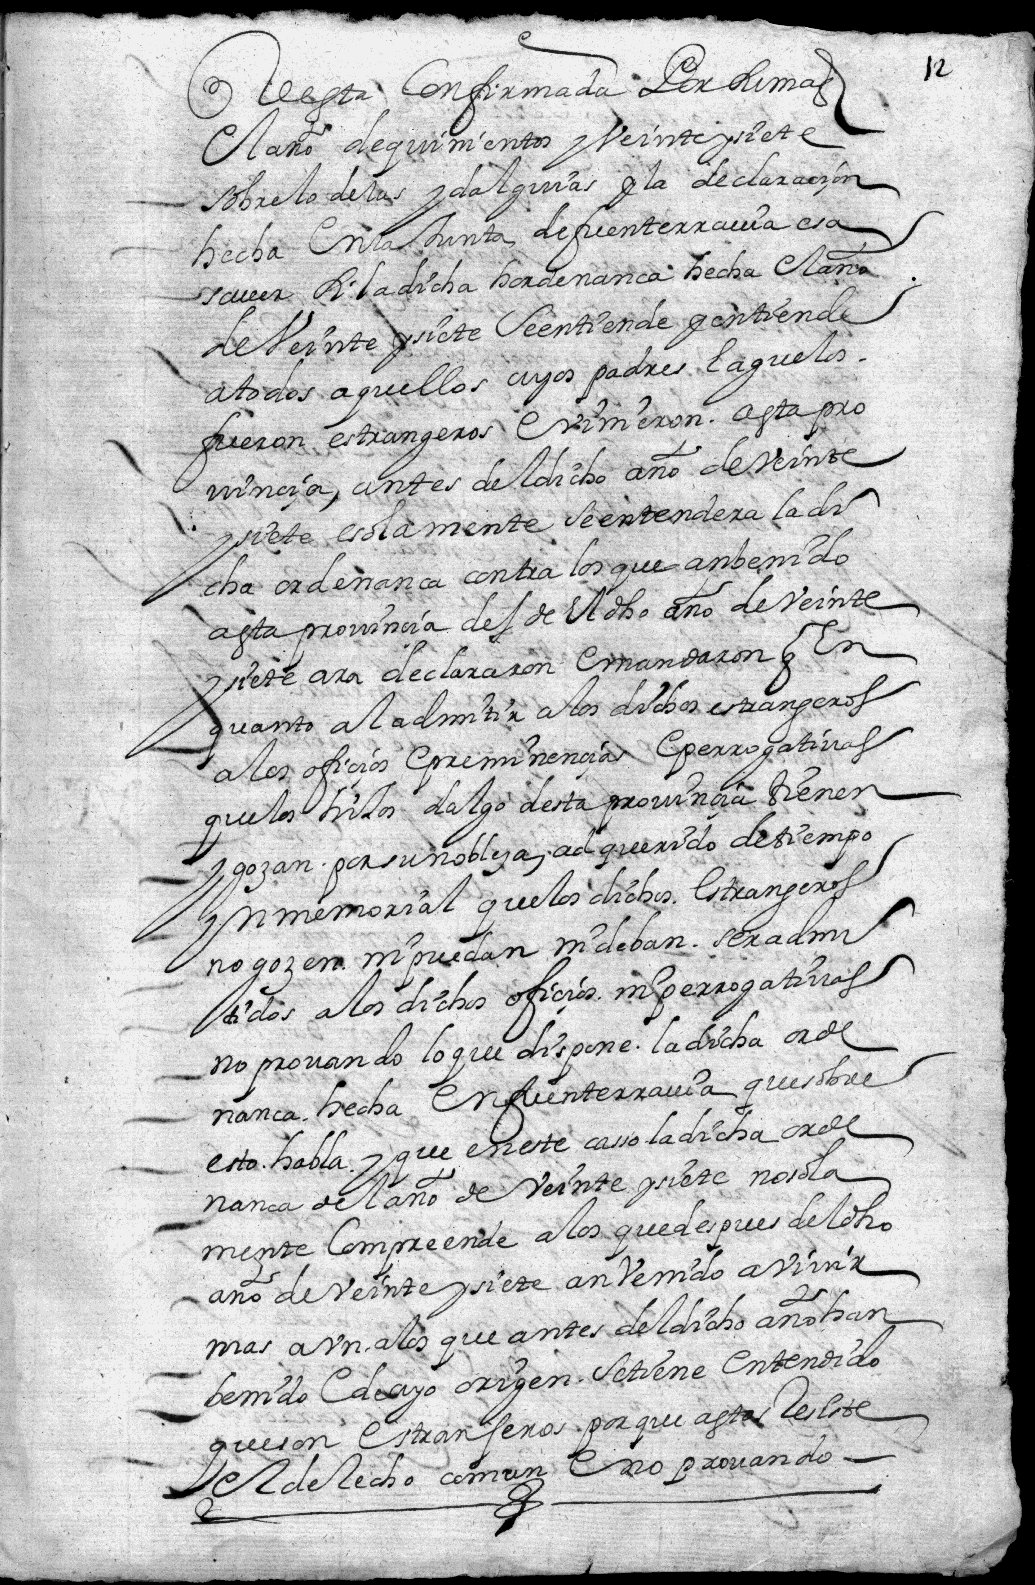 12
Vesta Confirmada Por su mag
El año de quinientos y Veinte y siete
sobre lo de las ydalguias y la declaracion
hecha En la Junta de fuenterrauia es a
sauer Si la dicha hordenanca hecha El año
de Veinte y siete Se entiende y entiende
a todos aquellos cuyos padres E aguelos
fueron estrangeros E vinieron a esta pro
uincia, antes del dicho año de Veinte
y siete e solamente Se entendera la di
cha ordenanca contra los que an benido
a esta prouincia desde El dho año de Veinte
y siete aca declararon E mandaron q En
quanto al admitir a los dichos estrangeros
a los oficios E preminencias E perrogatiuas
que los hijos dalgo desta prouincia tienen
y gozan por su nobleza, adquerido de tiempo
ynmemorial que los dichos Estrangeros
no gozen ni puedan ni deban ser admi
tidos a los dichos oficios ni perrogatiuas
no prouando lo que dispone la dicha orde
nanca hecha En fuenterrauia que sobre
esto habla y que en este casso la dicha orde
nanca del año de Veinte y siete no sola
mente Compreende a los que despues del dho
año de Veinte y siete an Venido a Viuir
mas avn a los que antes del dicho año han
benido E de cuyo origen Se tiene Entendido
que son Estranjeros por que a estos Resiste
El derecho comun E no prouando